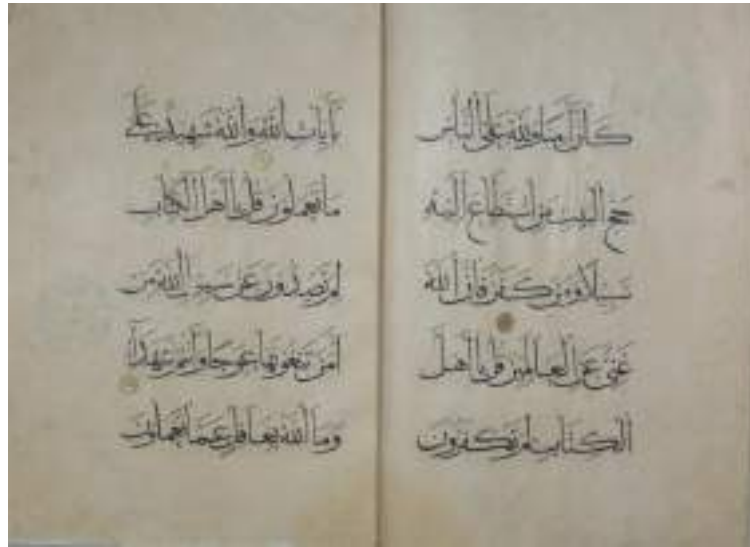 كان آمنا ولله على الناس
حج البيت من استطاع إليه
سبيلا ومن كفر فإن الله
غني عن العالمين قل يا أهل
الكتاب لم تكفرون
بآيات الله والله شهيد على
ما تعملون قل يا أهل الكتاب
لم تصدون عن سبيل الله من
آمن تبغونها عوجا وأنتم شهداء
وما الله بغافل عما تعملون